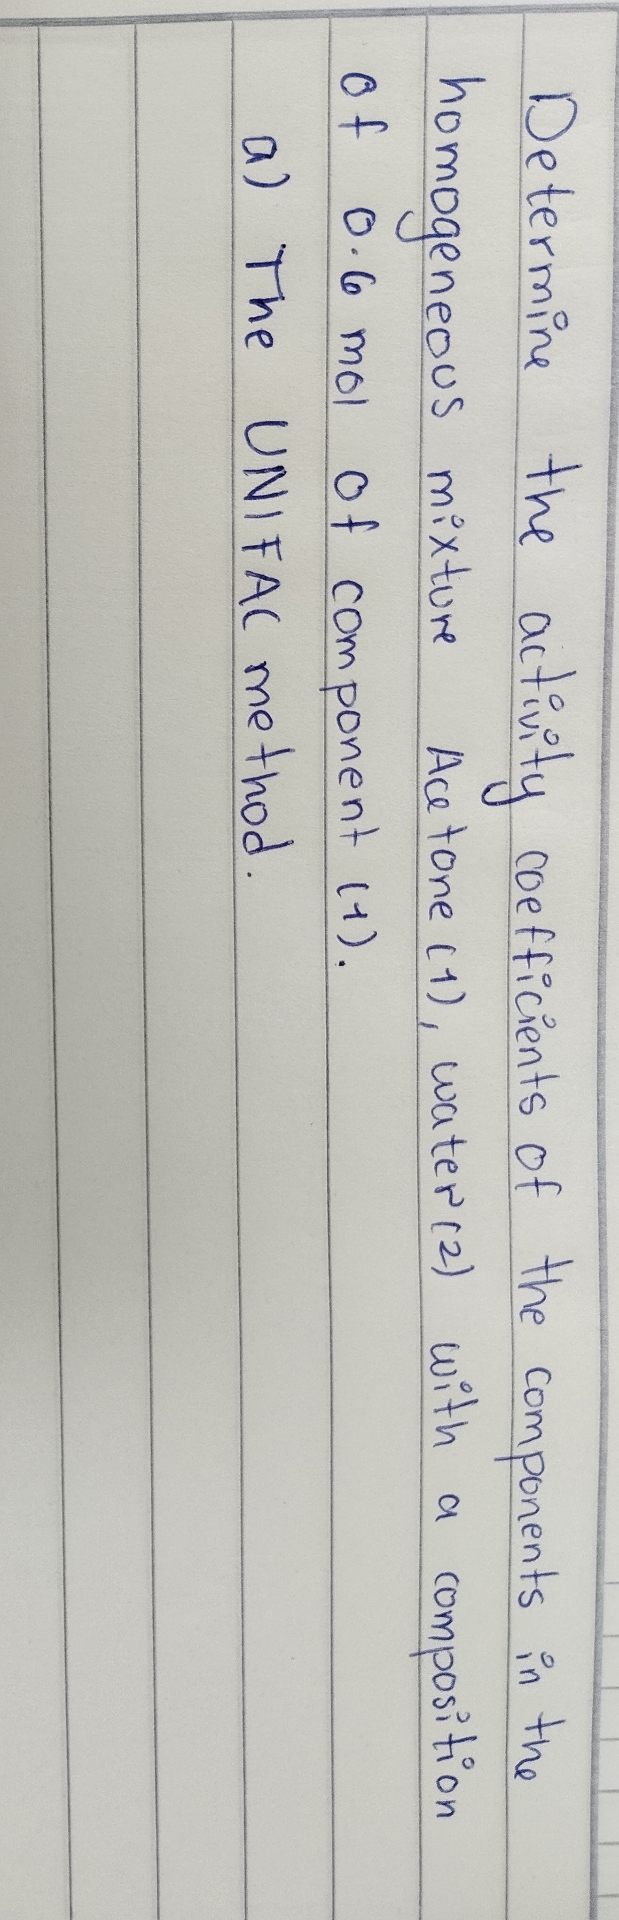 Determine the activity coefficients of the components in the
homogeneous mixture Acetone (1), water (2) with a composition
of 0.6 mol of component (1).
a) The UNIFAC method.